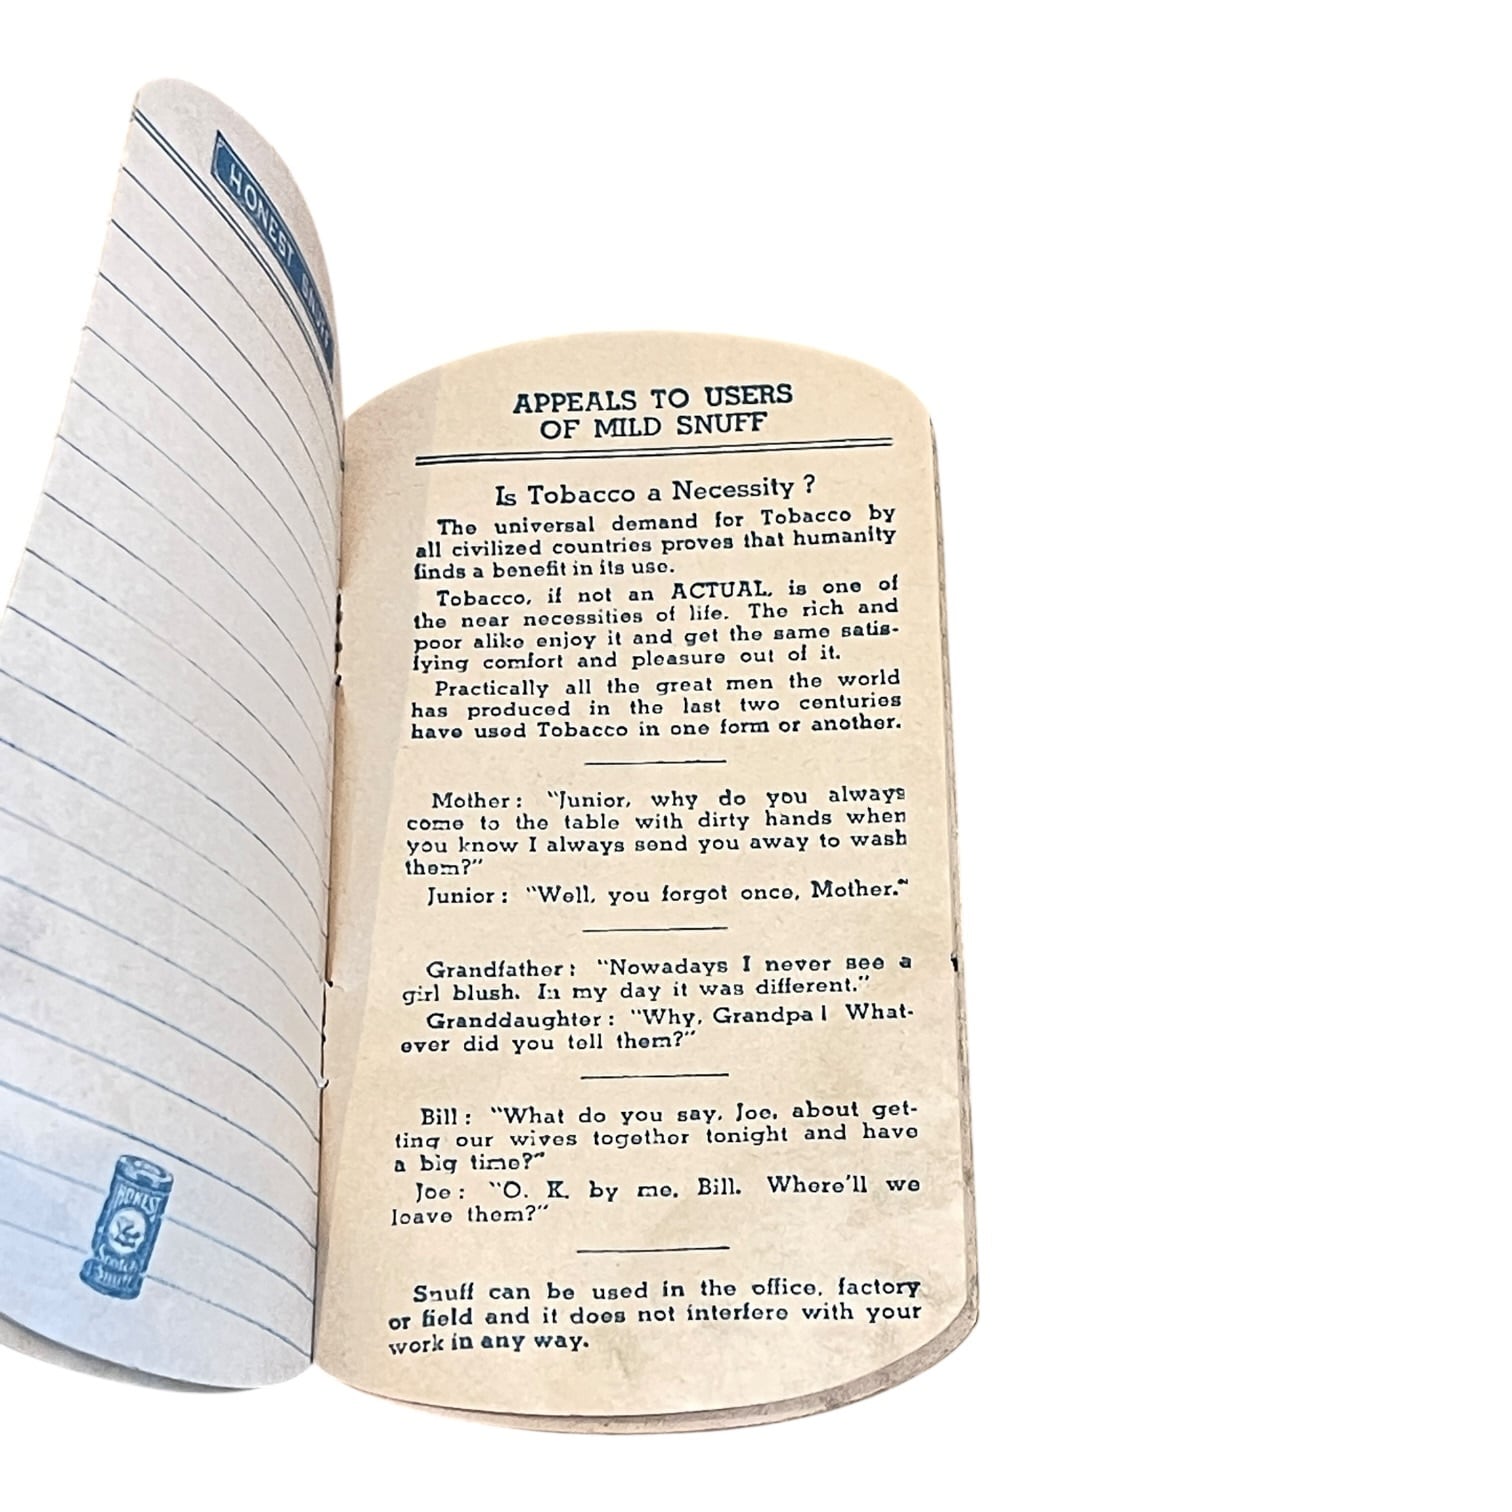 HONEST SNUFF
HONEST
Scotch
Snuff
APPEALS TO USERS
OF MILD SNUFF
Is Tobacco a Necessity?
The universal demand for Tobacco by
all civilized countries proves that humanity
finds a benefit in its use.
Tobacco, if not an ACTUAL, is one of
the near necessities of life. The rich and
poor alike enjoy it and get the same satis-
fying comfort and pleasure out of it.
Practically all the great men the world
has produced in the last two centuries
have used Tobacco in one form or another.
Mother: "Junior, why do you always
come to the table with dirty hands when
you know I always send you away to wash
them?"
Junior: "Well, you forgot once, Mother."
Grandfather: "Nowadays I never see a
girl blush. In my day it was different."
Granddaughter: "Why, Grandpa! What-
ever did you tell them?"
Bill: "What do you say, Joe, about get-
ting our wives together tonight and have
a big time?"
Joe: "O. K. by me, Bill. Where'll we
leave them?"
Snuff can be used in the office, factory
or field and it does not interfere with your
work in any way.